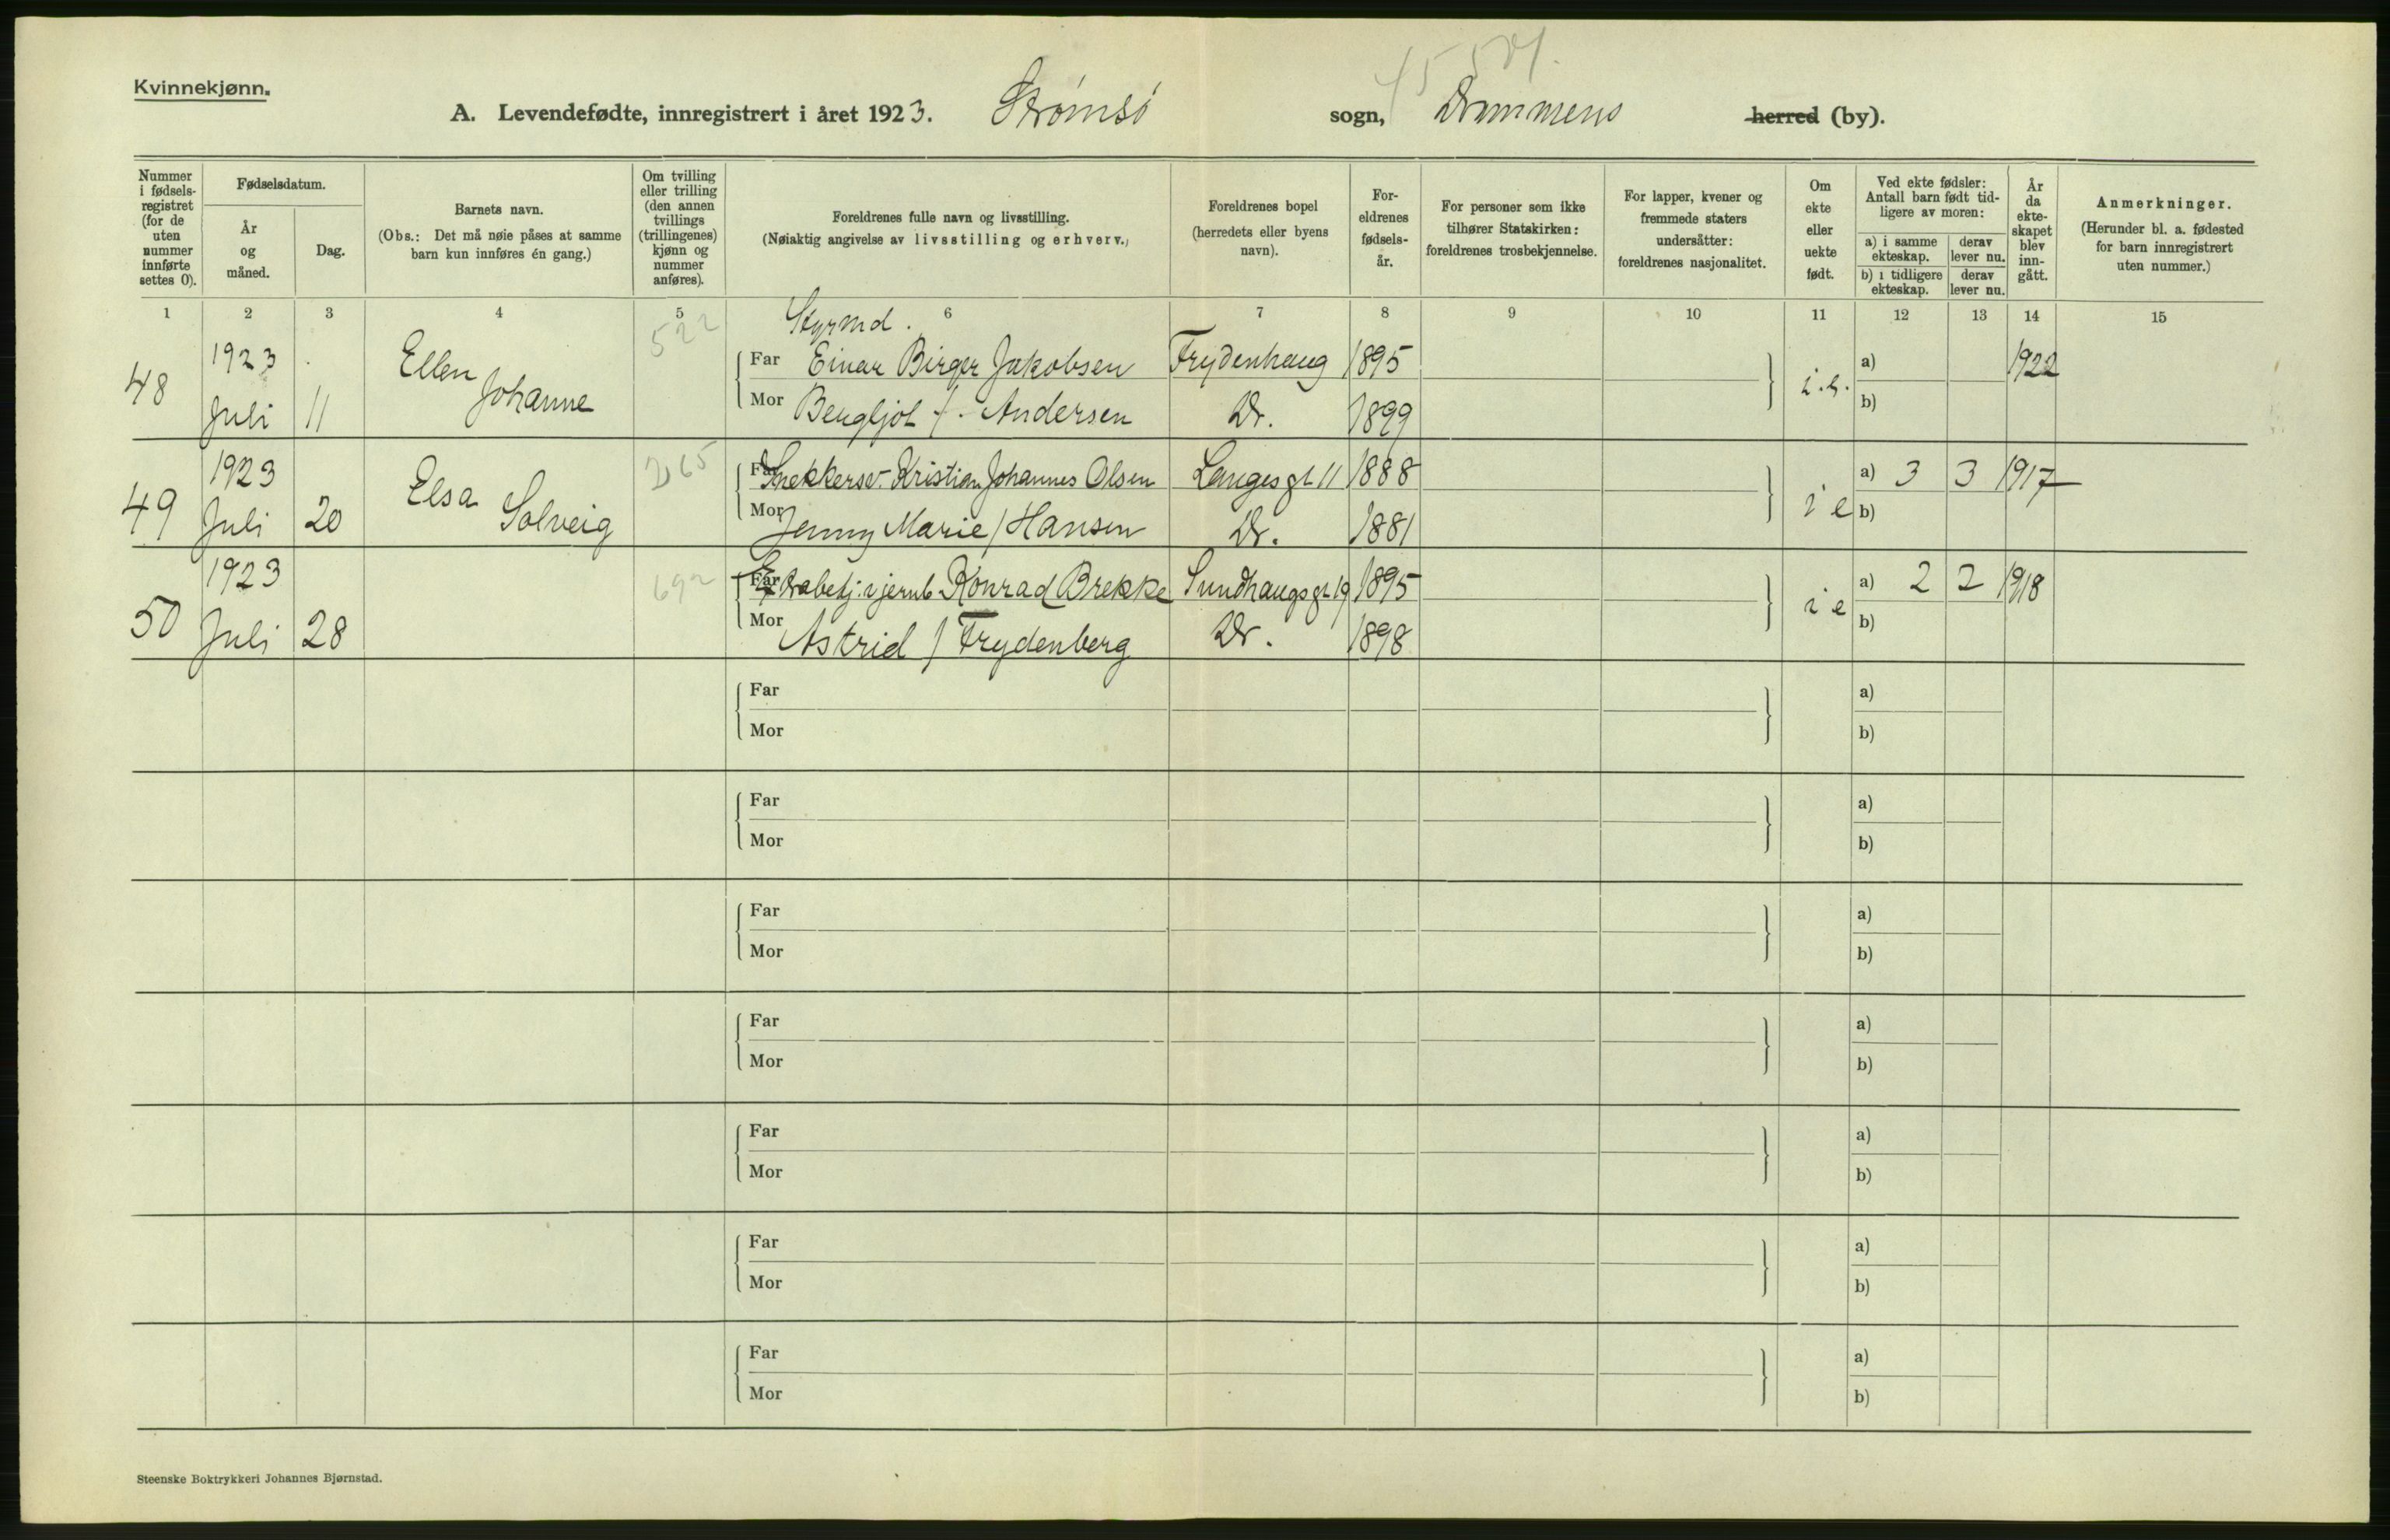 Kvinnekjønn.
A. Levendefødte, innregistrert i året 1923. Strømsø sogn, Drammens herred (by).
Nummer i fødsels-registret (for de uten nummer innførte settes 0).
Fødselsdatum.
År og måned.
Dag.
Barnets navn.
(Obs.: Det må nøie påses at samme barn kun innføres én gang.)
Om tvilling eller trilling (den annen tvillings (trillingenes) kjønn og nummer anføres).
Foreldrenes fulle navn og livsstilling.
(Nøiaktig angivelse av livsstilling og erhverv.)
Foreldrenes bopel (herredets eller byens navn).
For-eldrenes fødsels-år.
For personer som ikke tilhører Statskirken: foreldrenes trosbekjennelse.
For lapper, kvener og fremmede staters undersåtter: foreldrenes nasjonalitet.
Om ekte eller uekte født.
Ved ekte fødsler: Antall barn født tid-ligere av moren:
a) i samme ekteskap. derav lever nu.
b) i tidligere ekteskap. derav lever nu.
År da ekte-skapet blev inn-gått.
Anmerkninger.
(Herunder bl. a. fødested for barn innregistrert uten nummer.)
1 2 3 4 5 6 7 8 9 10 11 12 13 14 15
522
Styrmd.
1923 Ellen Far Einar Birger Jakobsen Frydenhaug 1895 a) 1922
48 Juli 11 Johanne Mor Bengljot f. Andersen Dr. 1899 i.e. b)
265
1923 Elsa Far Snekkersv. Kristian Johannes Olsen Langesgt 11 1888 a) 3 3 1917
49 Juli 20 Solveig Mor Jenny Marie f Hansen Dr. 1881 i e b)
692
1923 Far Konrad Brekke Sundhaugsgt 19 1895 a) 2 2 1918
50 Juli 28 Mor Astrid f Frydenberg Dr. 1898 i e b)
Far a)
Mor b)
Far a)
Mor b)
Far a)
Mor b)
Far a)
Mor b)
Far a)
Mor b)
Far a)
Mor b)
Far a)
Mor b)
Steenske Boktrykkeri Johannes Bjørnstad.